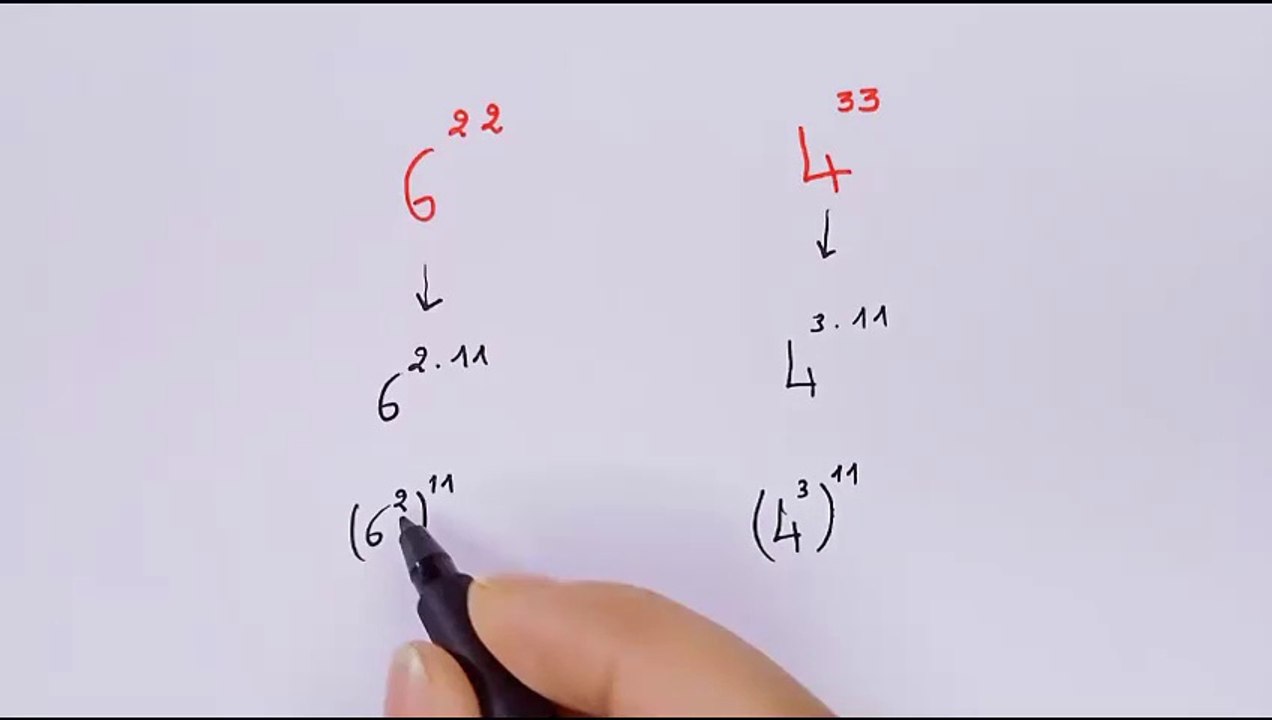 6²² 4³³
↓ ↓
6²·¹¹ 4³·¹¹
(6²)¹¹ (4³)¹¹